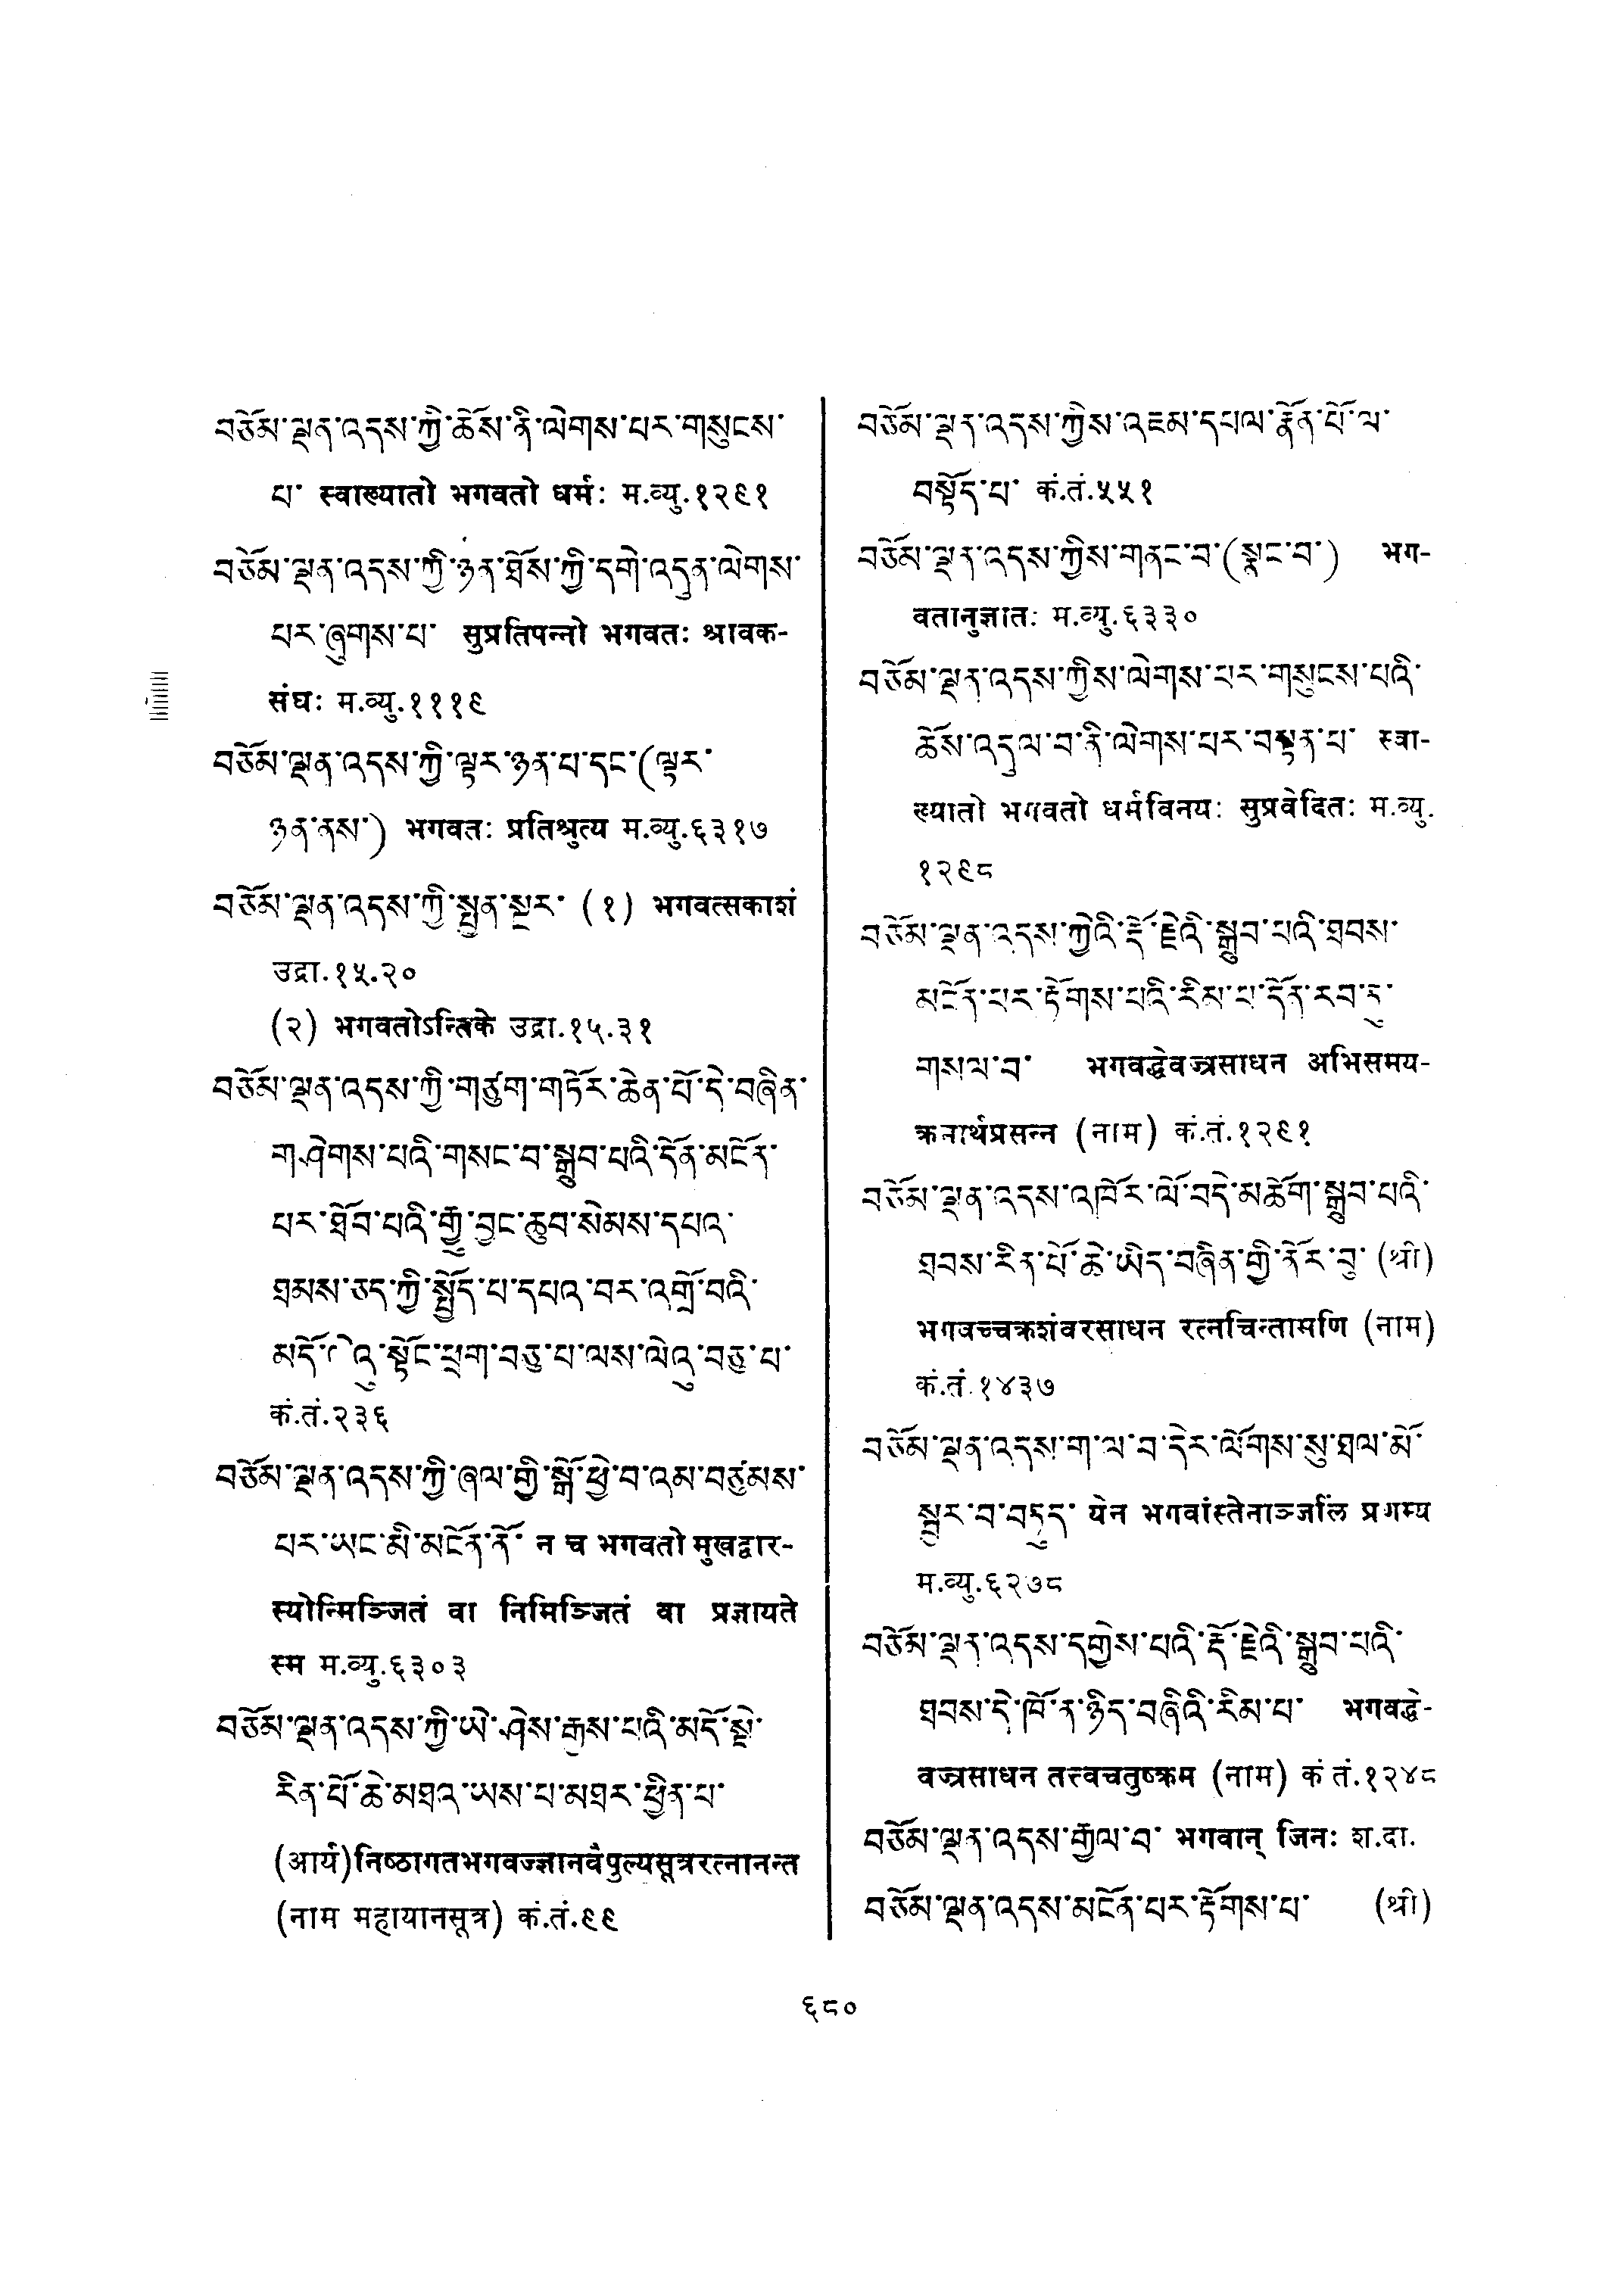 བཅོམ་ལྡན་འདས་ཀྱི་ཆོས་ནི་ལེགས་པར་གསུངས་
པ་ स्वाख्यातो भगवतो धर्मः म.व्यु.१२९१
བཅོམ་ལྡན་འདས་ཀྱི་ཉན་ཐོས་ཀྱི་དགེ་འདུན་ལེགས་
པར་ཞུགས་པ་ सुप्रतिपन्नो भगवतः श्रावक-
संघः म.व्यु.१११९
བཅོམ་ལྡན་འདས་ཀྱི་ལྟར་ཉན་པ་དང་(ལྟར་
ཉན་ནས་) भगवतः प्रतिश्रुत्य म.व्यु.६३१७
བཅོམ་ལྡན་འདས་ཀྱི་སྤྱན་སྔར་ (१) भगवत्सकाशं
उद्रा.१५.२०
(२) भगवतोऽन्तिके उद्रा.१५.३१
བཅོམ་ལྡན་འདས་ཀྱི་གཙུག་གཏོར་ཆེན་པོ་དེ་བཞིན་
ག་ཤེགས་པའི་གསང་བ་སྒྲུབ་པའི་དོན་མངོན་
པར་ཐོབ་པའི་རྒྱུ་བྱང་ཆུབ་སེམས་དཔའ་
ཐམས་ཅད་ཀྱི་སྤྱོད་པ་དཔའ་བར་འགྲོ་བའི་
མདོ་ལེའུ་སྟོང་ཕྲག་བཅུ་པ་ལས་ལེའུ་བཅུ་པ་
कं.तं.२३६
བཅོམ་ལྡན་འདས་ཀྱི་ཞལ་གྱི་སྒོ་ཕྱེ་བ་འམ་བཙུམས་
པར་ཡང་མི་མངོན་ནོ་ न च भगवतो मुखद्वार-
स्योन्मिञ्जितं वा निमिञ्जितं वा प्रज्ञायते
स्म म.व्यु.६३०३
བཅོམ་ལྡན་འདས་ཀྱི་ཡེ་ཤེས་རྒྱས་པའི་མདོ་སྡེ་
རིན་པོ་ཆེ་མཐའ་ཡས་པ་མཐར་ཕྱིན་པ་
(आर्य)निष्ठागतभगवज्ज्ञानवैपुल्यसूत्ररत्नानन्त
(नाम महायानसूत्र) कं.तं.९९
བཅོམ་ལྡན་འདས་ཀྱིས་འཇམ་དཔལ་རྣོན་པོ་ལ་
བསྟོད་པ་ कं.तं.५५१
བཅོམ་ལྡན་འདས་ཀྱིས་གནང་བ་(སྣང་བ་) भग-
वतानुज्ञातः म.व्यु.६३३०
བཅོམ་ལྡན་འདས་ཀྱིས་ལེགས་པར་གསུངས་པའི་
ཆོས་འདུལ་བ་ནི་ལེགས་པར་བསྟན་པ་ स्वा-
ख्यातो भगवतो धर्मविनयः सुप्रवेदितः म.व्यु.
१२९८
བཅོམ་ལྡན་འདས་ཀྱེའི་རྡོ་རྗེའི་སྒྲུབ་པའི་ཐབས་
མངོན་པར་རྟོགས་པའི་རིམ་པ་དོན་རབ་ཏུ་
གསལ་བ་ भगवद्धेवज्रसाधन अभिसमय-
क्रमार्थप्रसन्न (नाम) कं.तं.१२९१
བཅོམ་ལྡན་འདས་འཁོར་ལོ་བདེ་མཆོག་སྒྲུབ་པའི་
ཐབས་རིན་པོ་ཆེ་ཡིད་བཞིན་གྱི་ནོར་བུ་ (श्री)
भगवच्चक्रशंवरसाधन रत्नचिन्तामणि (नाम)
कं.तं.१४३७
བཅོམ་ལྡན་འདས་ག་ལ་བ་དེར་ལོགས་སུ་ཐལ་མོ་
སྦྱར་བ་བཏུད་ येन भगवांस्तेनाञ्जलिं प्रणम्य
म.व्यु.६२७८
བཅོམ་ལྡན་འདས་དགྱེས་པའི་རྡོ་རྗེའི་སྒྲུབ་པའི་
ཐབས་དེ་ཁོ་ན་ཉིད་བཞིའི་རིམ་པ་ भगवद्धे-
वज्रसाधन तत्त्वचतुष्क्रम (नाम) कं तं.१२४८
བཅོམ་ལྡན་འདས་རྒྱལ་བ་ भगवान् जिनः श.दा.
བཅོམ་ལྡན་འདས་མངོན་པར་རྟོགས་པ་ (श्री)
६८०